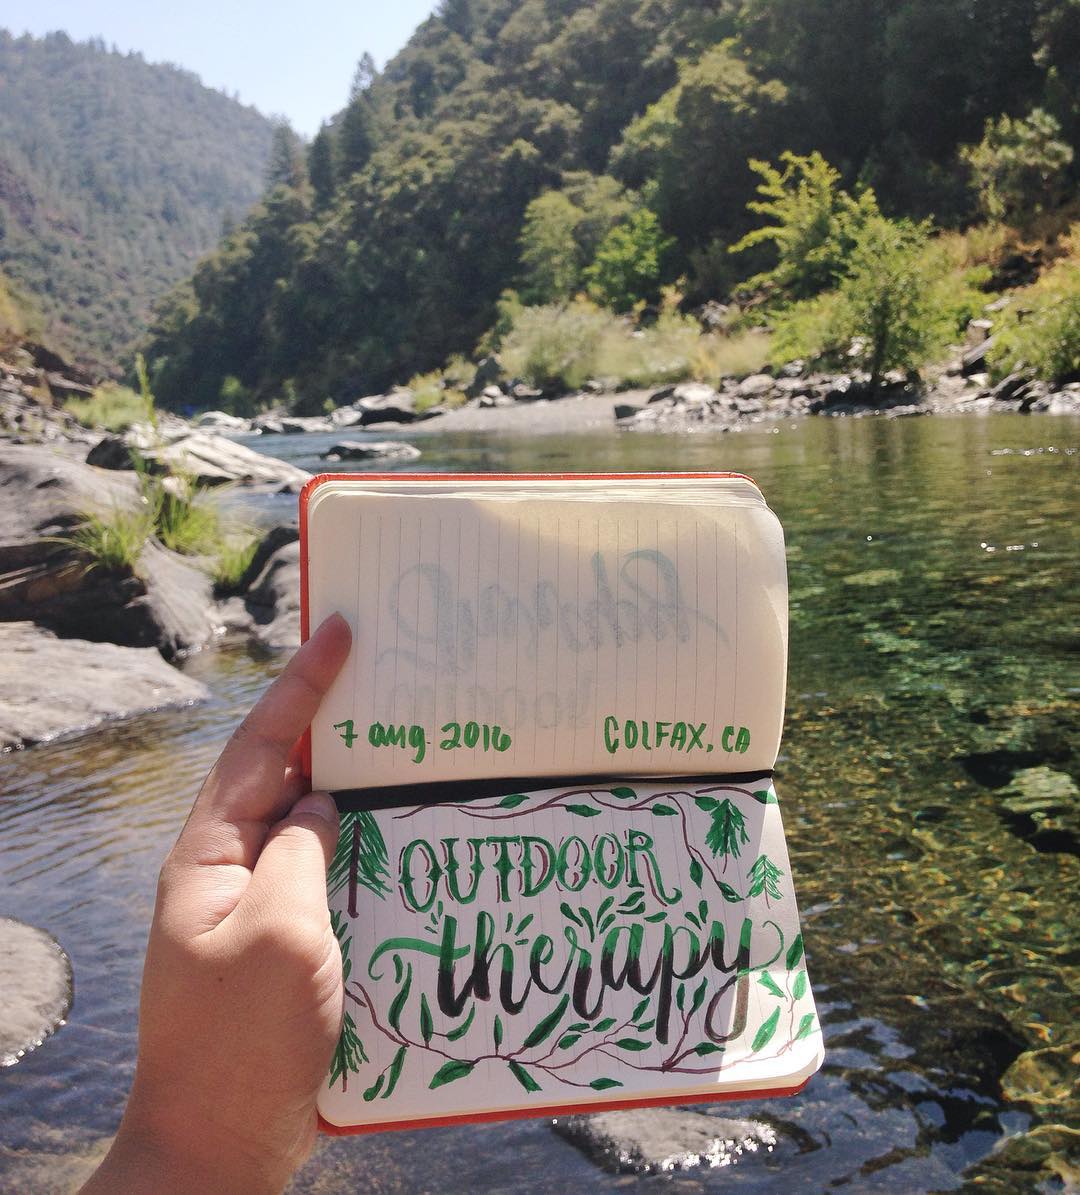 7 aug. 2016 COLFAX, CA
OUTDOOR
therapy